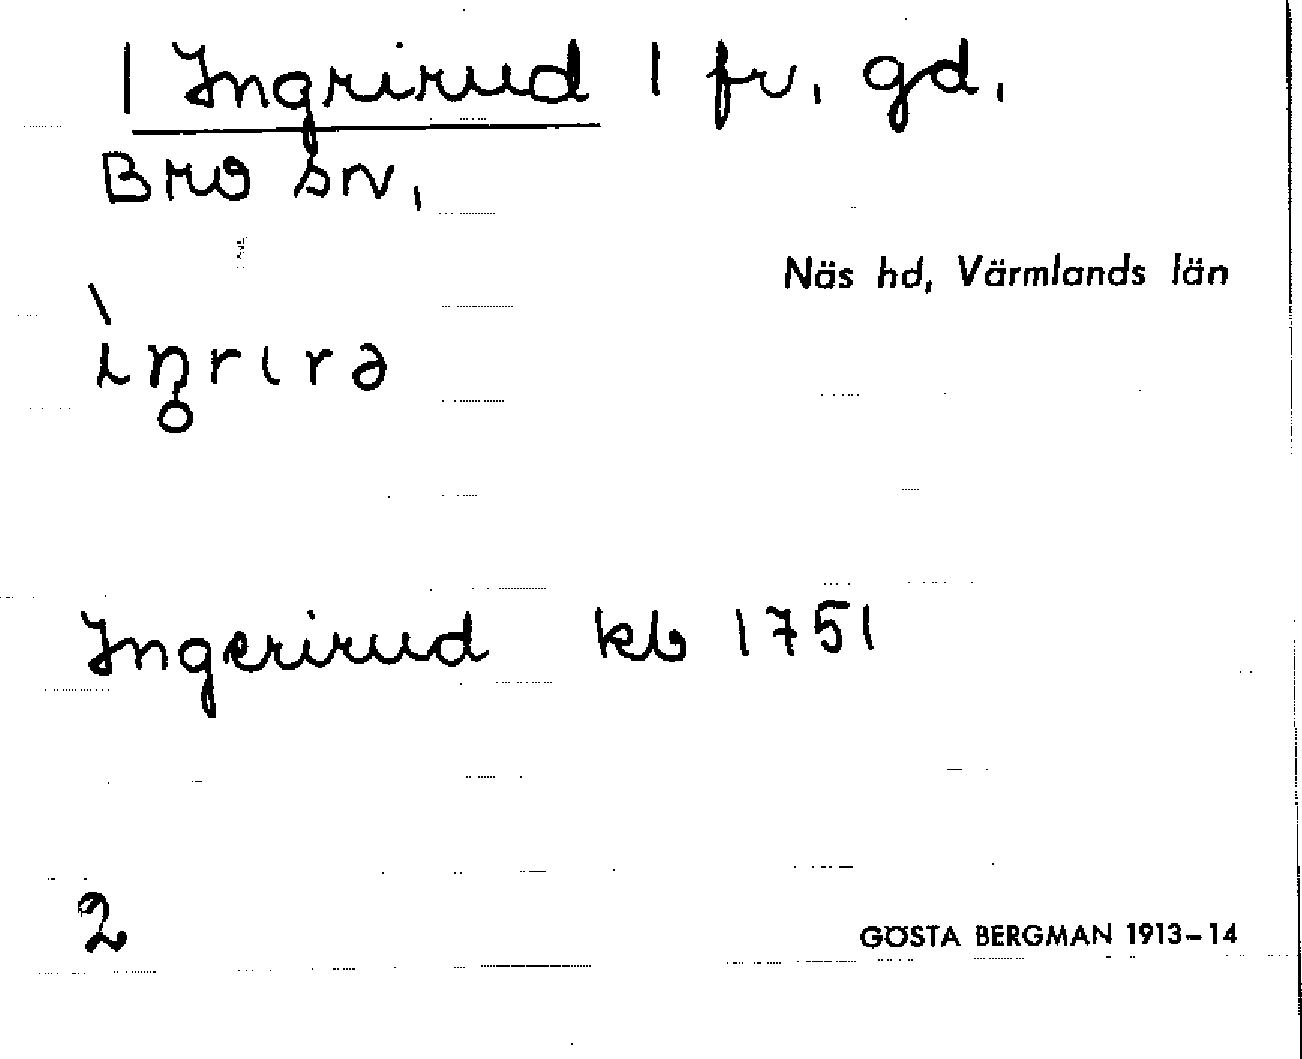 | Ingrirud | fv. gd.
Bro sn,
Näs hd, Värmlands län
ìŋ̥rɩrə
Ingerirud kb 1751
2
GÖSTA BERGMAN 1913–14